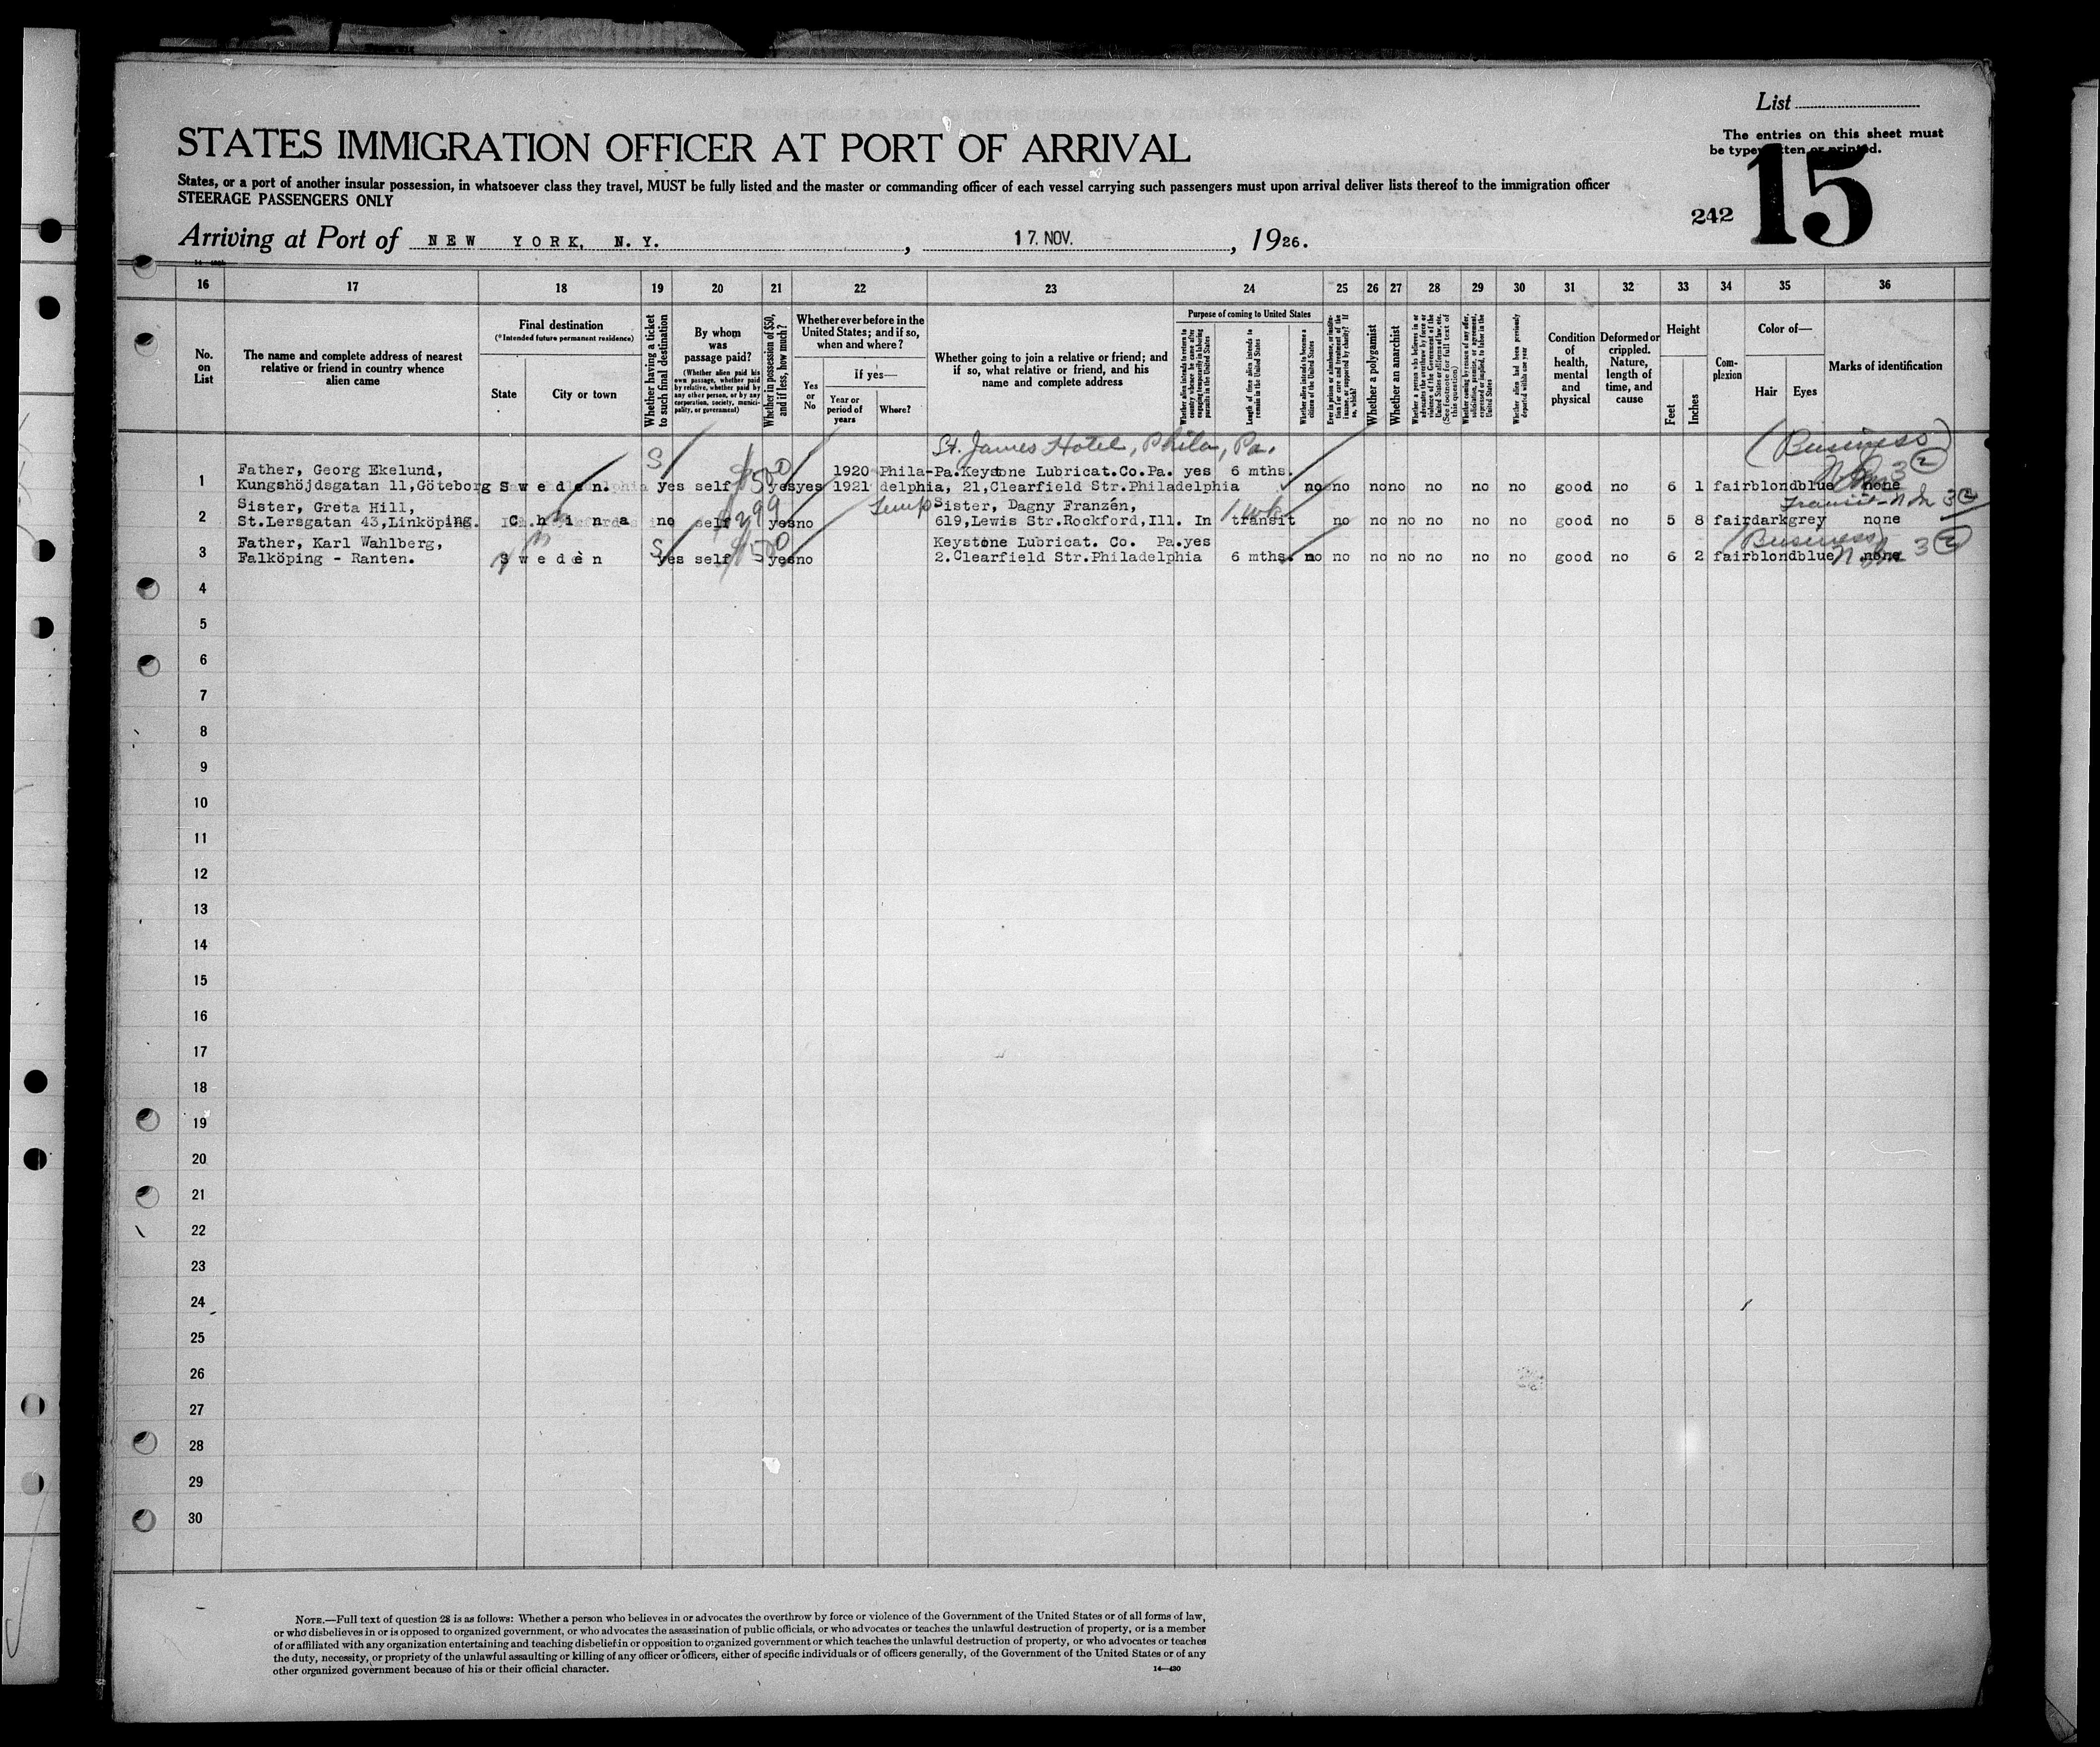 List
The entries on this sheet must
be typewritten or printed.
STATES IMMIGRATION OFFICER AT PORT OF ARRIVAL
States, or a port of another insular possession, in whatsoever class they travel, MUST be fully listed and the master or commanding officer of each vessel carrying such passengers must upon arrival deliver lists thereof to the immigration officer
STEERAGE PASSENGERS ONLY
242 15
Arriving at Port of NEW YORK, N. Y. , 17. NOV. , 1926.
16 17 18 19 20 21 22 23 24 25 26 27 28 29 30 31 32 33 34 35 36
No. on List
The name and complete address of nearest relative or friend in country whence alien came
Final destination
(*Intended future permanent residence)
State
City or town
Whether having a ticket to such final destination
By whom was passage paid?
(Whether alien paid his own passage, whether paid by relative, whether paid by any other person, or by any corporation, society, municipality, or government)
Whether in possession of $50, and if less, how much?
Whether ever before in the United States; and if so, when and where?
Yes or No
If yes—
Year or period of years
Where?
Whether going to join a relative or friend; and if so, what relative or friend, and his name and complete address
Purpose of coming to United States
Whether alien intends to return to country whence he came after engaging temporarily in laboring pursuits in the United States
Length of time alien intends to remain in the United States
Whether alien intends to become a citizen of the United States
Whether a polygamist
Whether an anarchist
Condition of health, mental and physical
Deformed or crippled. Nature, length of time, and cause
Height
Feet
Inches
Complexion
Color of—
Hair Eyes
Marks of identification
St. James Hotel, Phila, Pa. (Business)
Father, Georg Ekelund, S 1920 Phila-Pa. Keystone Lubricat.Co.Pa. yes 6 mths. 3 2
1 Kungshöjdsgatan 11,Göteborg Sweden. yes self $500 yes yes 1921 delphia, 21,Clearfield Str.Philadelphia no no no no no no no good no 6 1 fair blond blue none
Sister, Greta Hill, Temp Sister, Dagny Franzén, 1 wk Transit 3 2
2 St.Lersgatan 43,Linköping. China no self $299 yes no 619,Lewis Str.Rockford,Ill. In transit no no no no no no good no 5 8 fair dark grey none
Father, Karl Wahlberg, S Keystone Lubricat. Co. Pa. yes (Business) 3 2
3 Falköping - Ranten. Sweden yes self $500 yes no 2.Clearfield Str.Philadelphia 6 mths. no no no no no no no good no 6 2 fair blond blue none
4
5
6
7
8
9
10
11
12
13
14
15
16
17
18
19
20
21
22
23
24
25
26
27
28
29
30
NOTE.—Full text of question 28 is as follows: Whether a person who believes in or advocates the overthrow by force or violence of the Government of the United States or of all forms of law,
or who disbelieves in or is opposed to organized government, or who advocates the assassination of public officials, or who advocates or teaches the unlawful destruction of property, or is a member
of or affiliated with any organization entertaining and teaching disbelief in or opposition to organized government or which teaches the unlawful destruction of property, or who advocates or teaches
the duty, necessity, or propriety of the unlawful assaulting or killing of any officer or officers, either of specific individuals or of officers generally, of the Government of the United States or of any
other organized government because of his or their official character.
14—430